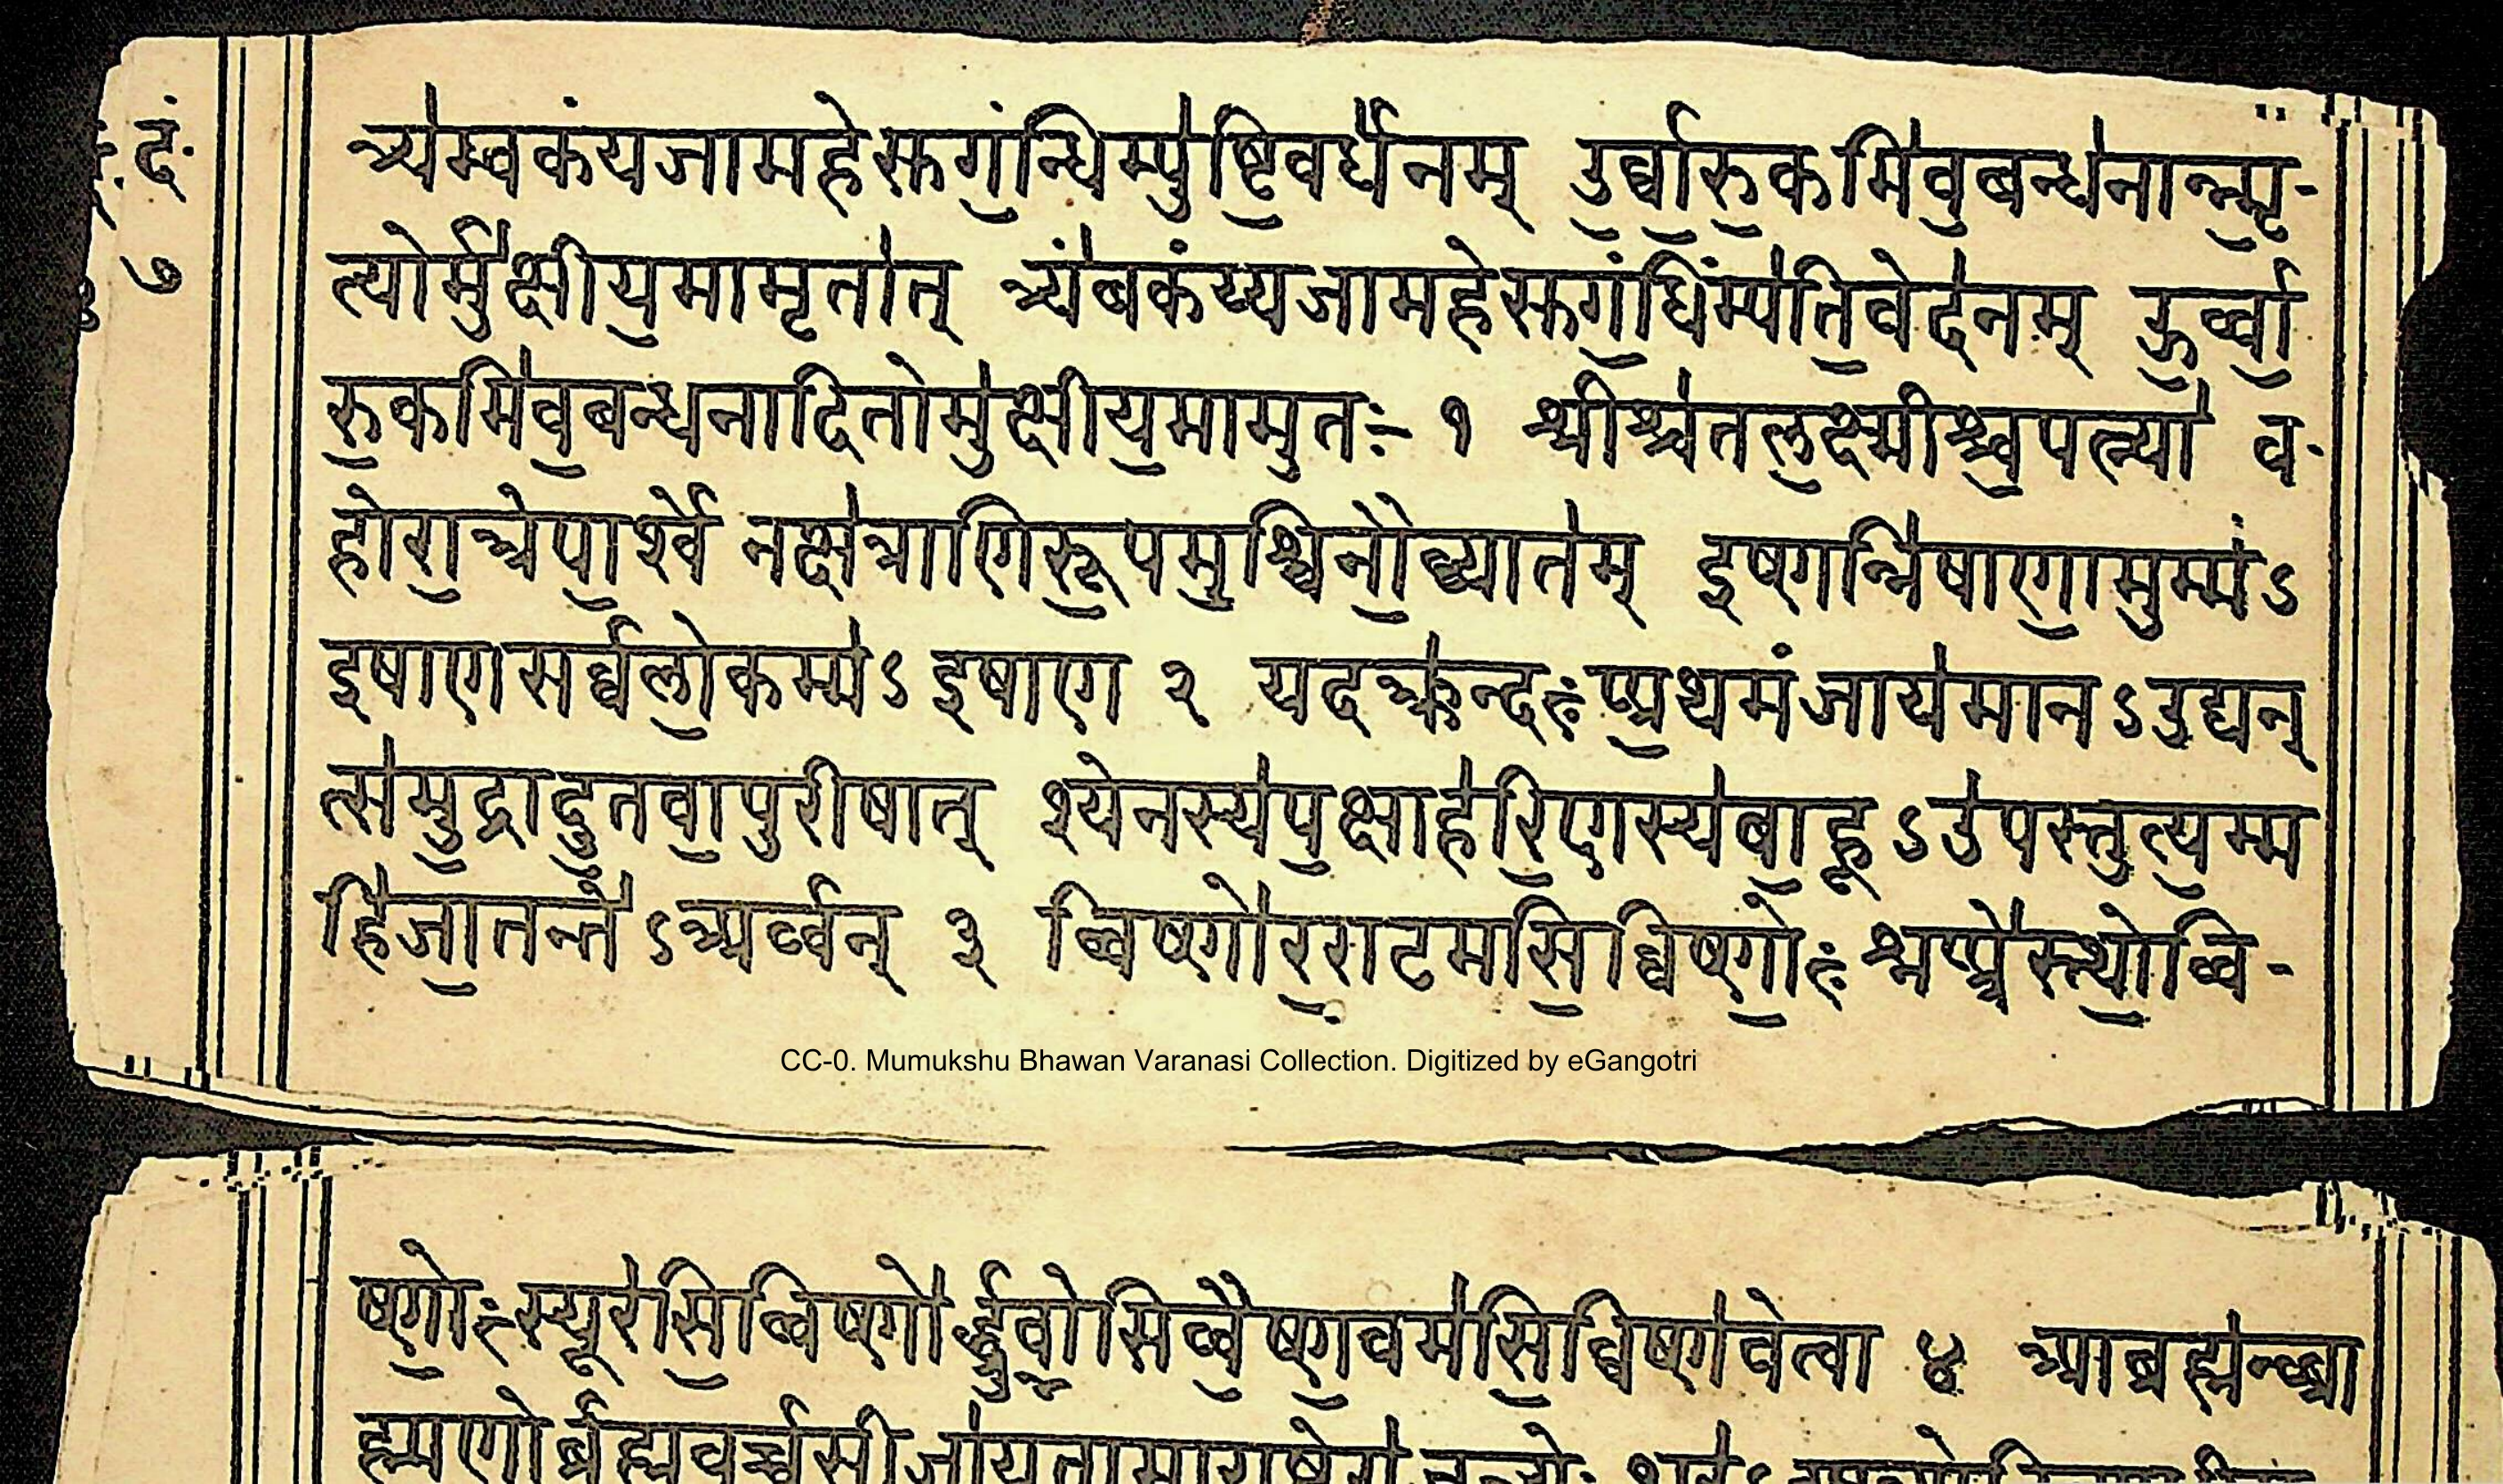 दं॰
७
त्र्य॑म्वकंयजामहेसुग॒न्धिम्पु॑ष्टि॒वर्ध॑नम् उ॒र्वा॒रु॒कमि॑व॒बन्ध॑नान्न्मृ॒-
त्योर्मु॑क्षीय॒मामृता॑त् त्र्यं॑बकंय्यजामहेसुगं॒धिंम्प॑ति॒वेद॑नम् उ॒र्व्वा॒
रु॒कमि॑व॒बन्धनादितोमु॑क्षीय॒मामुतः- १ श्रीश्च॑तल॒क्ष्मीश्च॒पत्न्या॑ व॰
होरा॒त्रेपा॒र्श्वे नक्ष॑त्राणिरू॒पम॒श्विनौ॒व्यात॑म् इषणन्नि॑षाणा॒मुम्म॑ंऽ
इषाणसर्वलो॒कम्म॑ऽ इषाण २ यदक्र॑न्दःप्प्र॒थमंजाय॑मानऽउद्यन्
त्स॑मु॒द्रादु॒तवा॒पुरीषात् श्येनस्य॑प॒क्षाह॑रि॒णस्य॑बा॒हूऽउ॑पस्तुत्य॒म्म
हि॑जा॒तन्ते॑ऽअर्व्वन् ३ व्विष्णो॑र॒राटमसि॒व्विष्णो॒ःश्नप्प्त्रे॑स्त्थो॒व्वि-
ष्णो॒ःस्यूर॑सि॒व्विष्णो॑र्द्ध्रु॒वो॒सिव्वै॒ष्ण॒वम॑सि॒व्विष्ण॑वेत्वा ४ आब्रह्म॑न्ब्ब्रा
ह्मणोर्ब्रह्मवर्च्चसीजा॑यतामारा
CC-0. Mumukshu Bhawan Varanasi Collection. Digitized by eGangotri